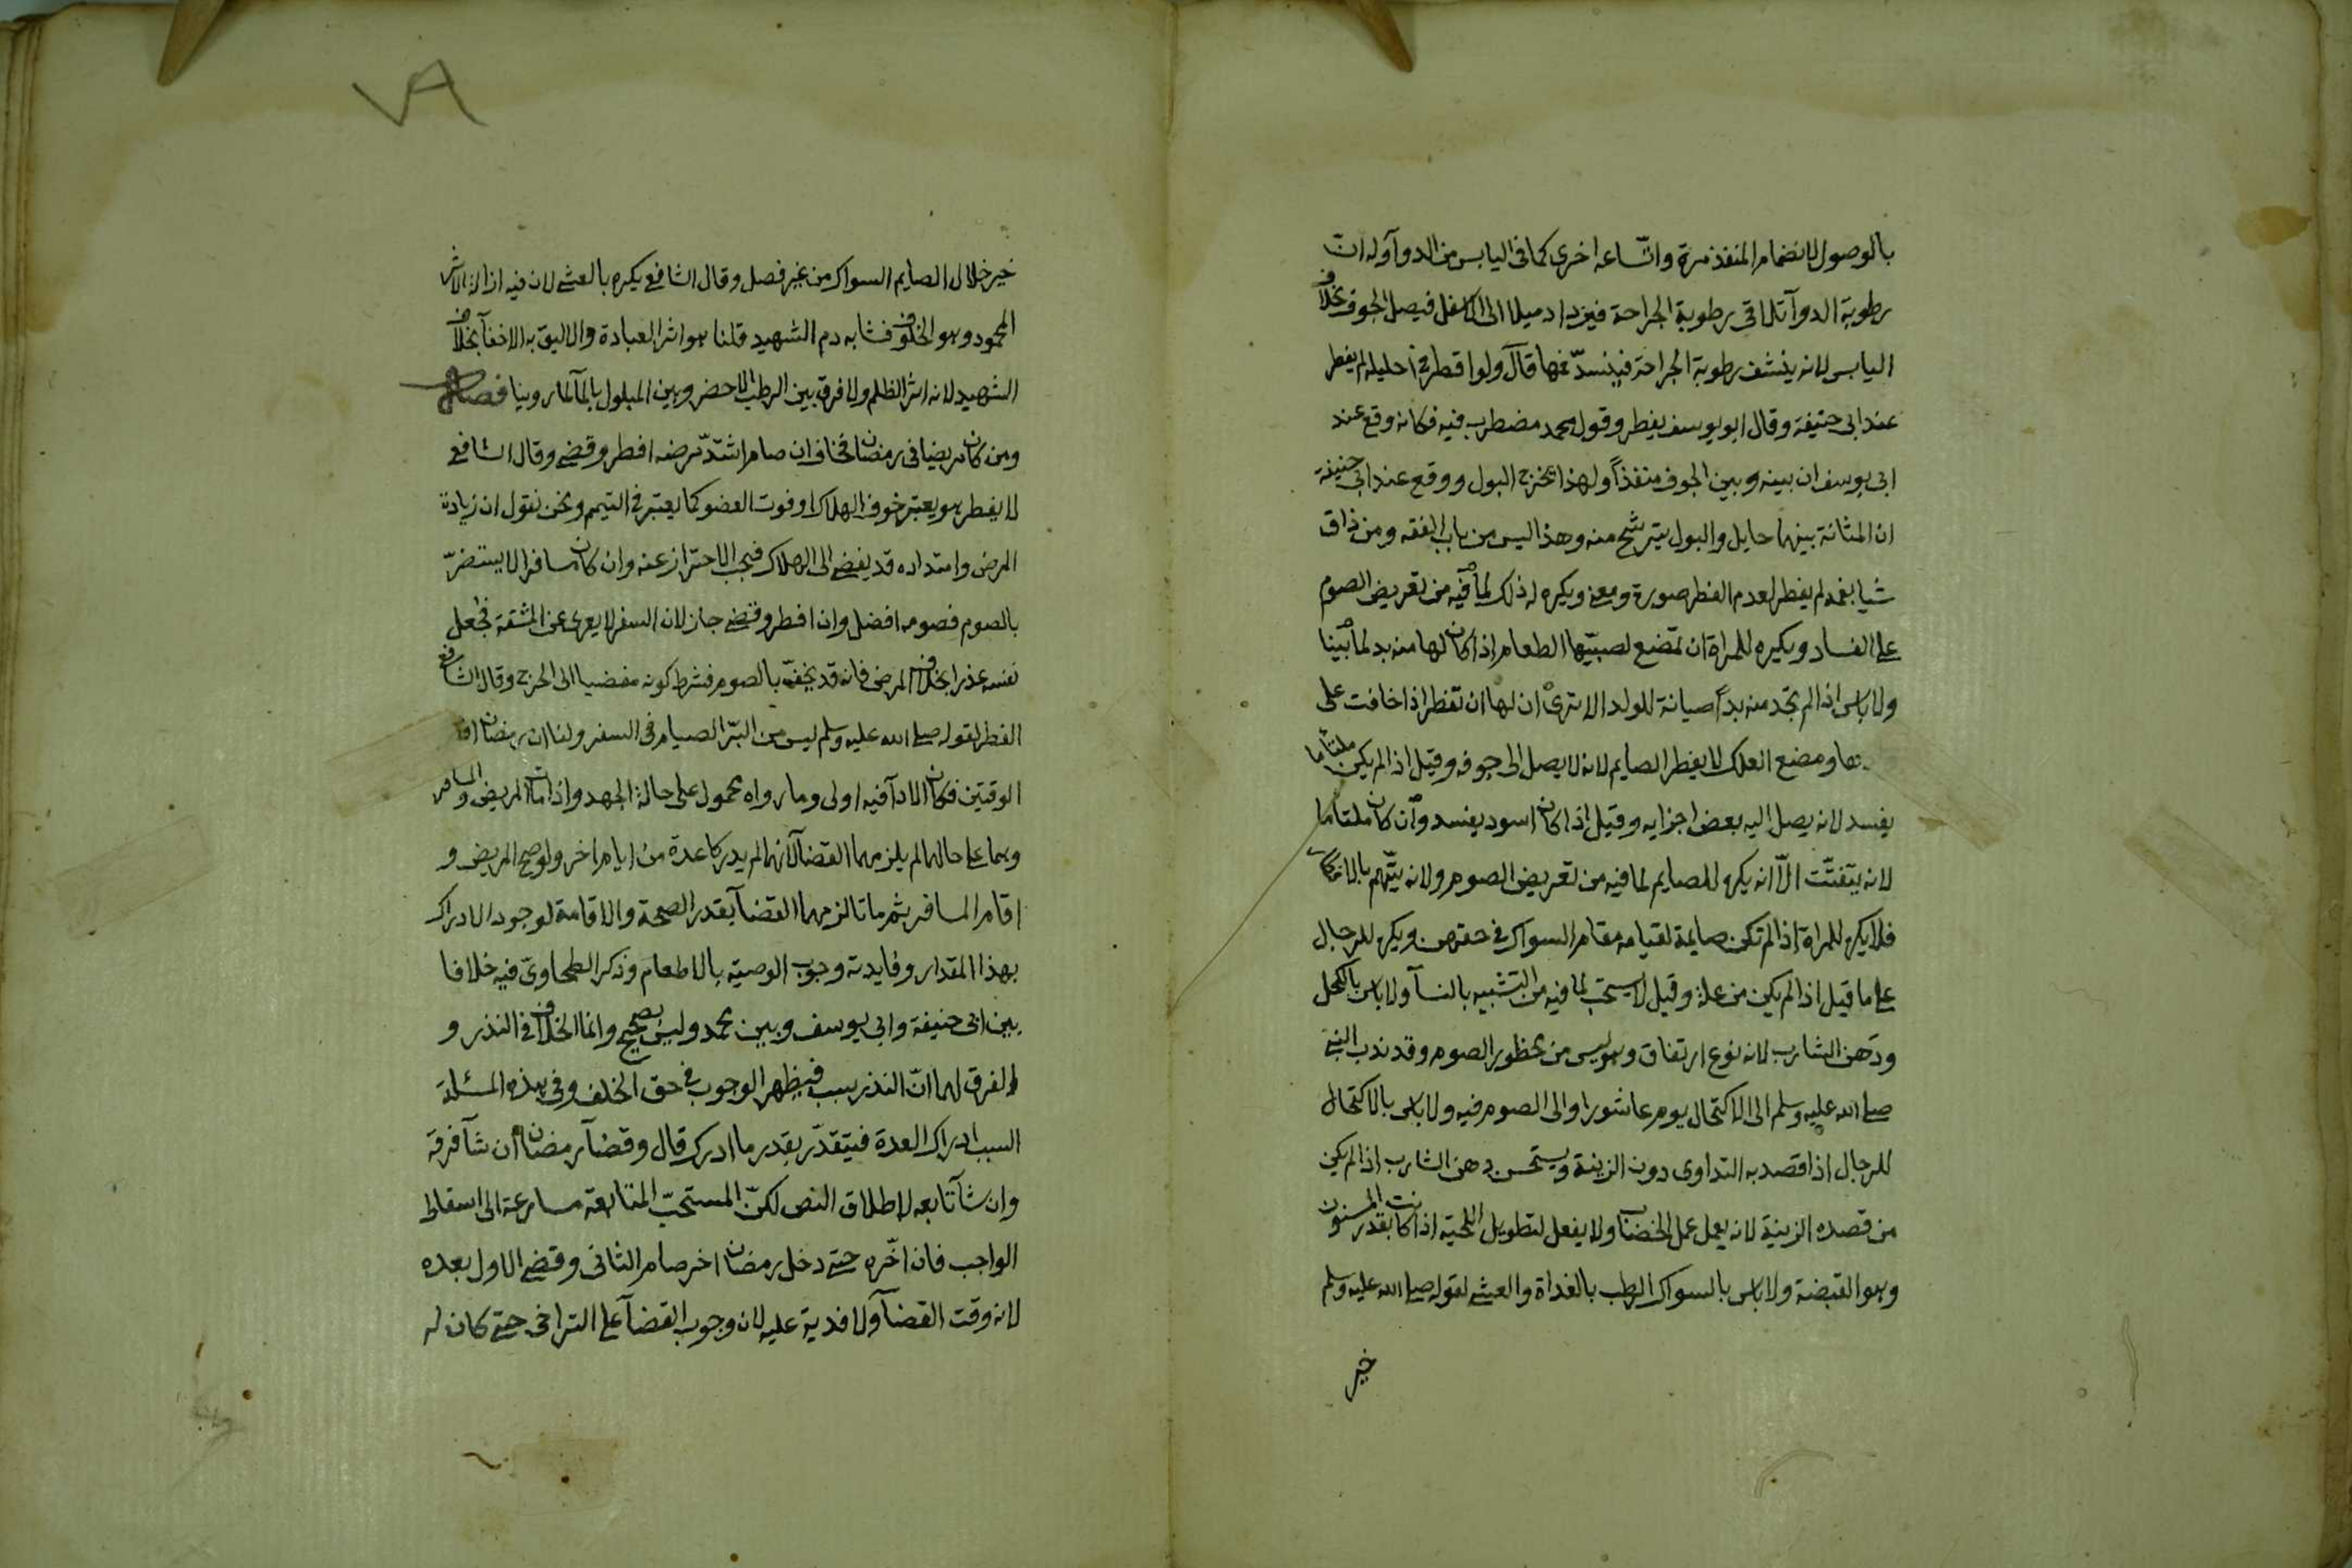 بالوصول لانضمام المنفذ مرة واتساعه اخرى كما فى اليابس من الدوآ وله ان
رطوبة الدوآ تلاقى رطوبة الجراحة فيزداد ميلا الى الاسفل فيصل الجوف بخلاف
اليابس لانه ينشف رطوبة الجراحة فينسدّ فمها قال ولو اقطر فى احليله لم يفطر
عند ابى حنيفة وقال ابو يوسف يفطر وقول محمد مضطرب فيه فكانه وقع عند
ابى يوسف ان بينه وبين الجوف منفذاً ولهذا يخرج البول ووقع عند ابى حنيفة
ان المثانة بينهما حايل والبول يترشح منه وهذا ليس من باب الفقه ومن ذاق
شيا بفمه لم يفطر لعدم الفطر صورة ومعنى ويكره له ذلك لما فيه من تعريض الصوم
على الفساد ويكره للمراة ان تمضغ لصبيّها الطعام اذا كان لها منه بد لما بينا
ولا باس اذا لم تجد منه بداً صيانة للولد الا ترى ان لها ان تفطر اذا خافت على
ومضغ العلك لا يفطر الصايم لانه لا يصل الى جوفه وقيل اذا لم يكن ملتاما
يفسد لانه يصل اليه بعض اجزايه وقيل اذا كان اسود يفسد وان كان ملتاما
لانه يتفتّت الّا انه يكره للصايم لما فيه من تعريض الصوم ولانه يتّهم بالافطار
فلا يكره للمراة اذا لم تكن صايمة لقيامه مقام السواك فى حقهن ويكره للرجال
على ما قيل اذا لم يكن من علة وقيل لا يستحب لما فيه من التشبيه بالنسآ ولا باس بالكحل
ودهن الشارب لانه نوع ارتفاق وهو ليس من محظور الصوم وقد ندب النبى
صلى الله عليه وسلم الى الاكتحال يوم عاشورا والى الصوم فيه ولا باس بالاكتحال
للرجال اذا قصد به التداوى دون الزينة ويستحسن دهن الشارب اذا لم يكن
من قصده الزينة لانه يعمل عمل الخضاب ولا يفعل لتطويل اللحية اذا كانت بقدر المسنون
وهو القبضة ولا باس بالسواك الرطب بالغداة والعشى لقوله صلى الله عليه وسلم
خير
٧٨
خير خلال الصايم السواك من غير فصل وقال الشافعى يكره بالعشى لان فيه ازالة الاثر
المحمود وهو الخلوف فشابه دم الشهيد قلنا هو اثر العبادة والاليق به الاخفآ بخلاف
الشهيد لانه اثر الظلم ولا فرق بين الرطب الاخضر وبين المبلول بالمآ لما روينا فصل
ومن كان مريضا فى رمضان فخاف ان صام اشتدّ مرضه افطر وقضى وقال الشافعى
لا يفطر هو يعتبر خوف الهلاك او فوت العضو كما يعتبر فى التيمم ونحن نقول ان زيادة
المرض وامتداده قد يفضى الى الهلاك فيجب الاحتراز عنه وان كان مسافرا لا يستضرّ
بالصوم فصومه افضل وان افطر وقضى جاز لان السفر لا يعرى عن المشقة فجعل
نفسه عذرا بخلاف المرض فانه قد يخفّ بالصوم فشرط كونه مفضيا الى الحرج وقال الشافعى
الفطر لقوله صلى الله عليه وسلم ليس من البرّ الصيام فى السفر ولنا ان رمضان
الوقتين فكان الادآ فيه اولى وما رواه محمول على حالة الجهد واذا مات المريض والمسافر
وهما على حالهما لم يلزمهما القضآ لانهما لم يدركا عدة من ايام اخر ولو صح المريض و
اقام المسافر ثم ماتا لزمهما القضآ بقدر الصحة والاقامة لوجود الادراك
بهذا المقدار وفايدته وجوب الوصية بالاطعام وذكر الطحاوى فيه خلافا
بين ابى حنيفة وابى يوسف وبين محمد وليس بصحيح وانما الخلاف فى النذر و
الفرق لهما انّ النذر سبب فيظهر الوجوب فى حق الخلف وفى هذه المسئلة
السبب ادراك العدة فيتقدّر بقدر ما ادرك قال وقضآ رمضان ان شآ فرقه
وان شآ تابعه لاطلاق النص لكنّ المستحبّ المتابعة مسارعة الى اسقاط
الواجب فان اخّره حتى دخل رمضان اخر صام الثانى وقضى الاول بعده
لانه وقت القضآ ولا فدية عليه لان وجوب القضآ على التراخى حتى كان له